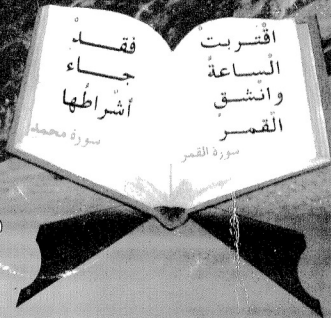 اقْتربتْ
الْساعةُ
وانْشق
الْقمرُ
سورة القمر
فقدْ
جاء
أشْراطُها
سورة محمد